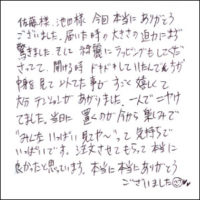 佐藤様、池田様 今回 本当に ありがとう
ございました。届いた時の大きさの迫力にまず
驚きました。そして 綺麗に ラッピングもしてくだ
さってて、開ける時 ドキドキして
中身を 見て 事が すごく 嬉しくて
大分 テンションが あがりました。一人で ニヤけ
てました。当日に 置くのが 今から 楽しみで
"みんな いっぱい 見てや〜" って 気持ちで
いっぱいです。注文させてもらって 本当に
良かったと思っています。本当に本当にありがとう
ございました